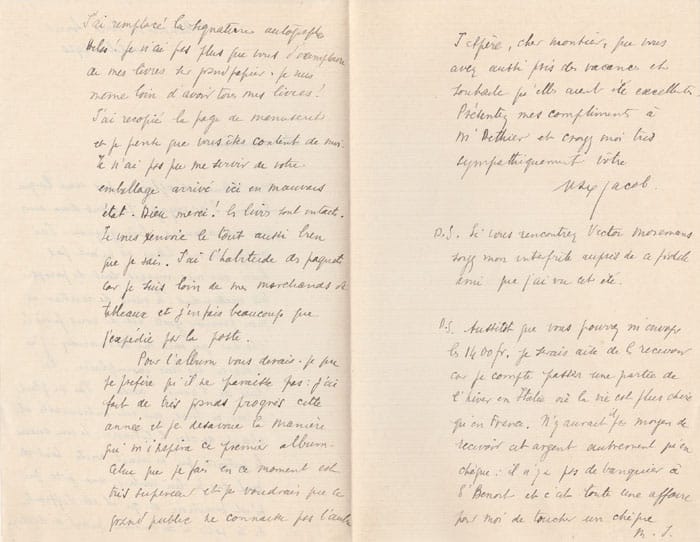 J'ai remplacé la signature autographe
hélas je n'ai pas plus que vous d'exemplaire
de mes livres sur grand papier. je suis
même loin d'avoir tous mes livres!
J'ai recopié la page de manuscrit
et je pense que vous êtes content de moi.
Je n'ai pas pu me servir de votre
emballage arrivé ici en mauvais
état. Dieu merci! les livres sont intacts.
Je vous envoie le tout aussi bien
que je sais. J'ai l'habitude des paquets
car je suis loin de mes marchands de
tableaux et j'en fais beaucoup que
j'expédie par la poste.
Pour l'album vous dirais-je que
je préfère qu'il ne paraisse pas: j'ai
fait de très grands progrès cette
année et je désavoue la manière
qui m'inspira ce premier album.
Celui que je fais en ce moment est
très supérieur et je voudrais que ce
grand public ne connaisse pas l'autre
J'espère, cher monsieur, que vous
avez aussi pris des vacances et
souhaite qu'elles aient été excellentes
Présentez mes compliments à
Mr Dethier et croyez moi très
sympathiquement vôtre
Max Jacob.
P.S. Si vous rencontrez Victor Moremans
soyez mon interprète auprès de ce fidèle
ami que j'ai vu cet été.
P.S. Aussitôt que vous pourrez m'envoyer
les 1400 fr. je serais aise de les recevoir
car je compte passer une partie de
l'hiver en Italie où la vie est plus chère
qu'en France. N'y aurait il pas moyen de
recevoir cet argent autrement qu'en
chèque: il n'y a pas de banquier à
St Benoit et c'est toute une affaire
pour moi de toucher un chèque
M. J.